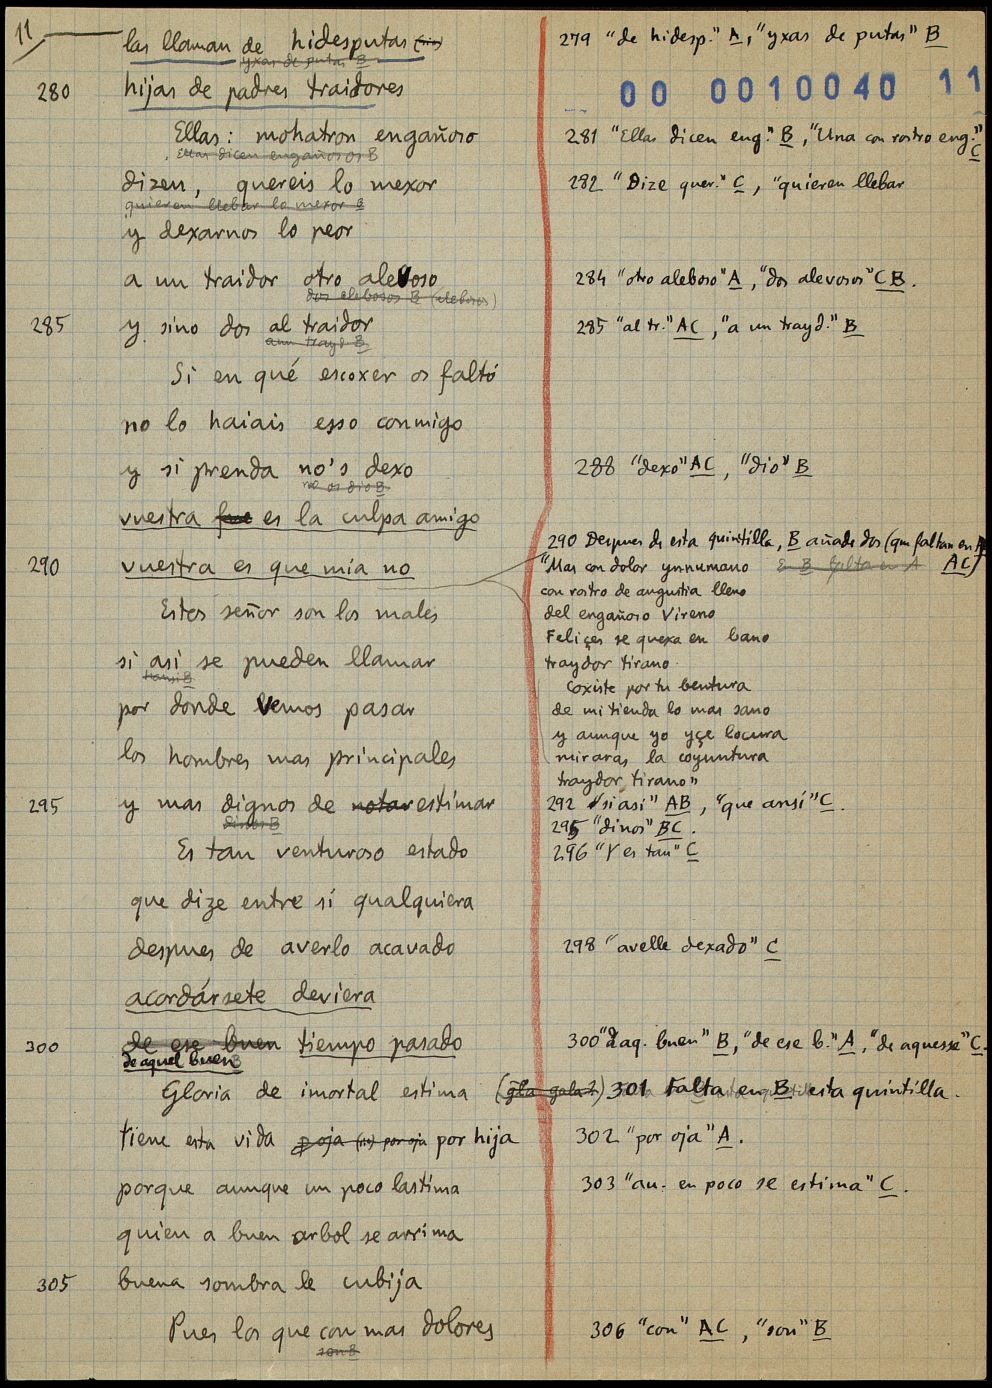 11
las llaman de hidesputas (sic)
yxas de putas B
280 hijas de padres traidores
Ellas: mohatron engañoso
Ellas dicen engañosos B
dizen, quereis lo mexor
quieren llebar lo mexor B
y dexarnos lo peor
a un traidor otro alevoso
dos alebosos B (alebosos)
285 y sino dos al traidor
a un trayd. B
Si en qué escoxer os faltó
no lo haiais esso conmigo
y si prenda no's dexo
no os dio B
vuestra fue es la culpa amigo
290 vuestra es que mía no
Estos señor son los males
si asi se pueden llamar
por donde vemos pasar
los hombres mas principales
295 y mas dignos de notar estimar
dinos B
Es tan venturoso estado
que dize entre sí qualquiera
despues de averlo acavado
acordársete deviera
300 de ese buen tiempo pasado
de aquel buen B
Gloria de imortal estima (gla gala?)
tiene esta vida p oja (sic) por oja por hija
porque aunque un poco lastima
quien a buen arbol se arrima
305 buena sombra le cubija
Pues los que con mas dolores
son B
279 "de hidesp." A, "yxas de putas" B
00 0010040 11
281 "Ellas dicen eng." B, "Una con rostro eng." C
282 "Dize quer." C, "quieren llebar
284 "otro aleboso" A, "dos alevosos" C B.
285 "al tr." AC, "a un trayd." B
288 "dexo" AC, "dio" B
290 Despues de esta quintilla, B añade dos (que faltan en AC)
"Mas con dolor ynnumano
E B falta en A
con rostro de angustia lleno
del engañoso Vireno
Feliçes se quexa en bano
traydor tirano.
Coxiste por tu bentura
de mi tienda lo mas sano
y aunque yo yçe locura
miraras la coyuntura
traydor tirano"
292 "si asi" AB, "que ansi" C.
295 "dinos" BC.
296 "Y es tan" C
298 "avelle dexado" C
300 "daq. buen" B, "de ese b." A, "de aquesse" C.
301 Falta en B esta quintilla.
302 "por oja" A.
303 "au. en poco se estima" C.
306 "con" AC, "son" B